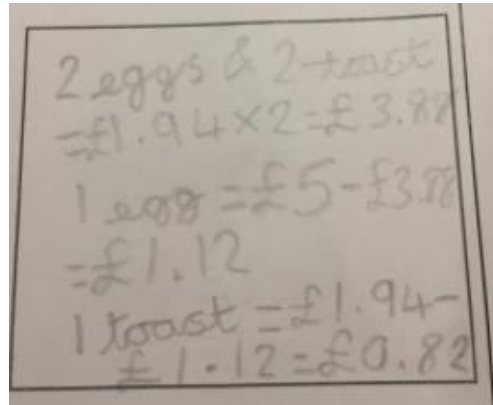 2 eggs & 2 toast
=£1.94×2=£3.88
1 egg =£5-£3.88
=£1.12
1 toast =£1.94-
£1.12=£0.82